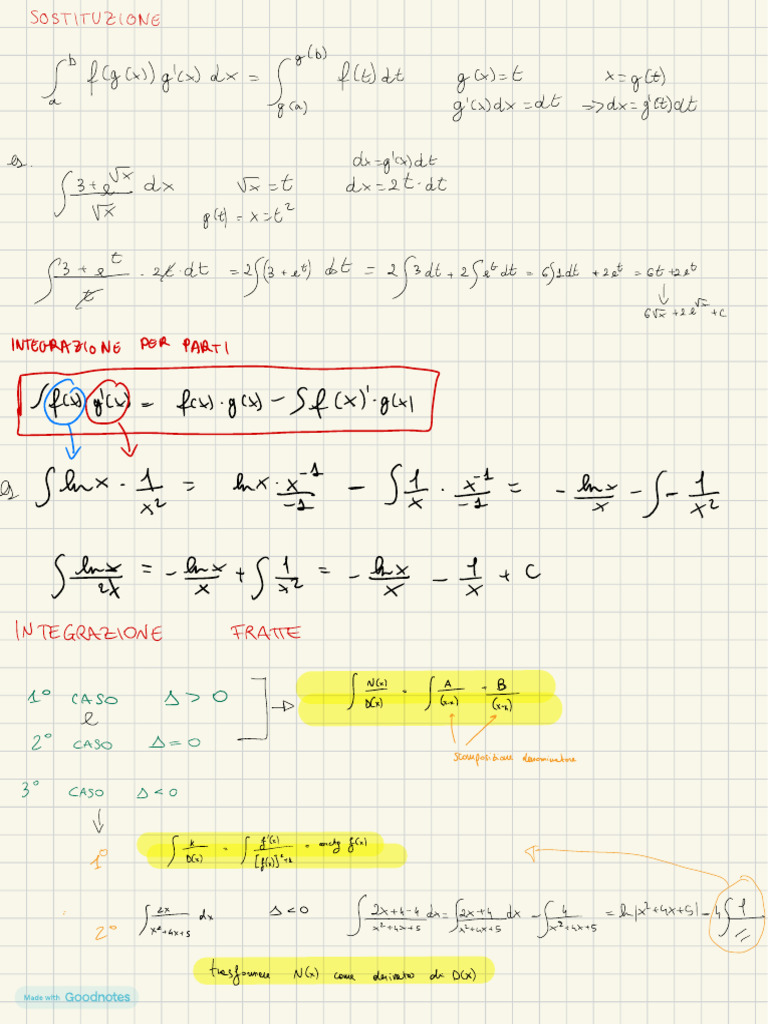 SOSTITUZIONE
∫ₐᵇ f(g(x)) g'(x) dx = ∫_{g(a)}^{g(b)} f(t) dt   g(x) = t   x = g(t)
g'(x) dx = dt => dx = g'(t) dt
es.
dx = g'(x) dt
∫ (3 + e^{√x})/√x dx   √x = t   dx = 2t · dt
g(t) = x = t²
∫ (3 + e^t)/t · 2t · dt = 2∫(3 + e^t) dt = 2∫3 dt + 2∫e^t dt = 6∫1 dt + 2e^t = 6t + 2e^t
↓
6√x + 2e^{√x} + c
INTEGRAZIONE PER PARTI
∫ f(x) g'(x) = f(x) · g(x) − ∫ f(x)' · g(x)
es ∫ ln x · 1/x² = ln x · x^{-1}/-1 − ∫ 1/x · x^{-1}/-1 = − ln x/x − ∫ − 1/x²
∫ ln x/2x = − ln x/x + ∫ 1/x² = − ln x/x − 1/x + C
INTEGRAZIONE FRATTE
1° CASO Δ > 0
e
2° CASO Δ = 0
∫ N(x)/D(x) = ∫ A/(x-x) + B/(x-x)
scomposizione denominatore
3° CASO Δ < 0
↓
1° ∫ k/D(x) = ∫ f'(x)/[f(x)]²+1 = arctg f(x)
2° ∫ 2x/(x²+4x+5) dx   Δ < 0   ∫ (2x+4-4)/(x²+4x+5) dx = ∫ (2x+4)/(x²+4x+5) dx − ∫ 4/(x²+4x+5) = ln|x²+4x+5| − 4∫ 1/
trasformare N(x) come derivata di D(x)
Made with Goodnotes